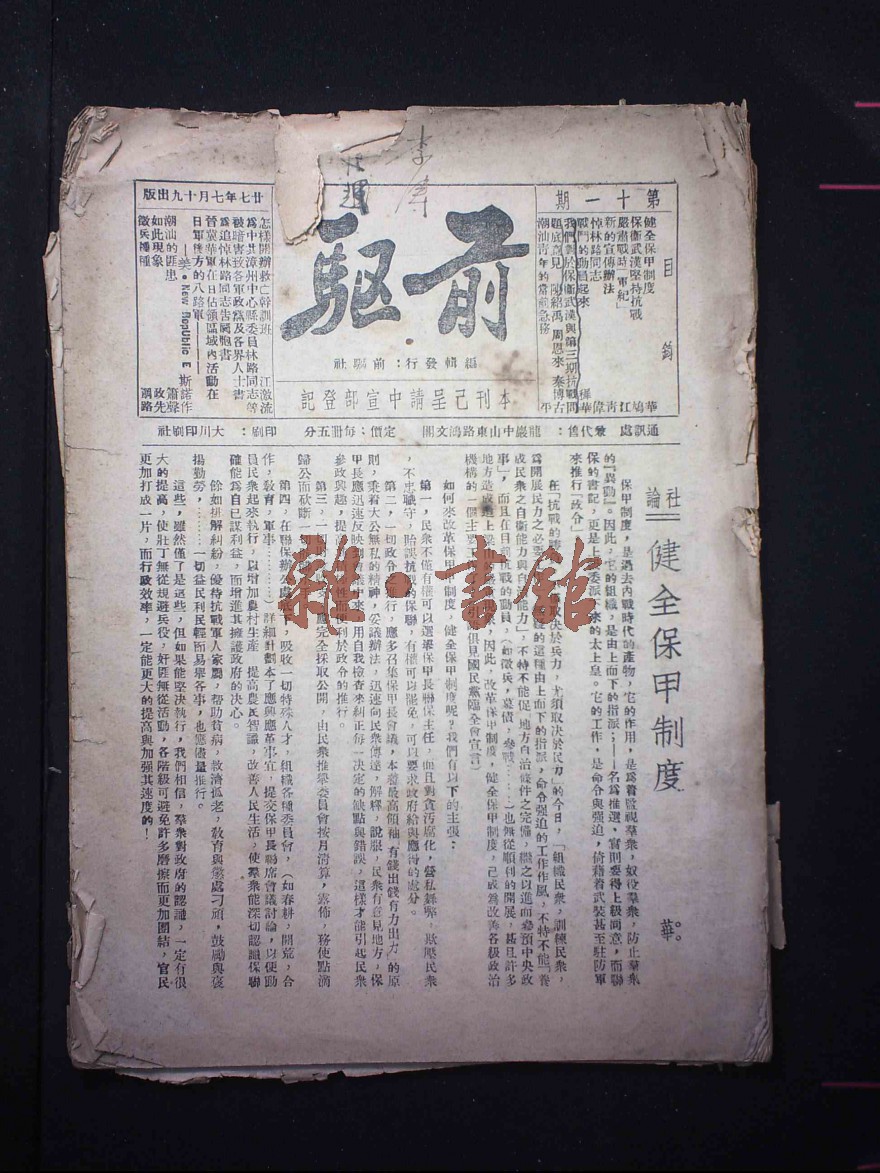 李濤
第十一期
目錄
健全保甲制度 華
保衛武漢堅持抗戰
嚴肅戰時「軍紀」
新的宣傳辦法
悼林路同志
戰鬥的動員起來
我們對於保衛武漢與第三期抗戰問
題底意見 陳紹禹 周恩來 秦博古
潮汕青年的當前急務
前驅
編輯發行:前驅社
本刊已呈請中宣部登記
廿七年七月十九出版
怎樣開辦救亡幹訓班 江激流
為中共漳州中心縣委員林路同志等
被暗害致各軍政黨及各界人士書
為追悼林路同志告廣胞書
晉冀華軍在日佔領區域內活動在
日軍後方的八路軍
——美·New Republic E 斯諾作
潮汕的匪患 蕭聲
如此現象 政先
徵兵種種
通訊處兼代售:龍巖中山東路鴻文閣 定價:每冊五分 印刷:大川印刷社
社論
健全保甲制度 華。
保甲制度,是過去內戰時代的產物,它的作用,是為着監視羣衆,奴役羣衆,防止羣衆
的『異動』。因此,它的組織,是由上面下的指派;——名為推選,實則要得上級同意,而聯
保的書記,更是上級委派下來的太上皇。它的工作,是命令與强迫,倚藉着武裝甚至駐防軍
來推行「政令」
在「抗戰的勝 取決於兵力,尤須取決於民力」的今日,「組織民衆,訓練民衆,
為開展民力之必要 的這種由上面下的指派,命令强迫的工作作風,不特不能「養
成民衆之自衛能力與自 能力」,不特不能促 地方自治條件之完備,繼之以進而參預中央政
事」,而且在目前抗戰的動員,(如徵兵,募債,參戰……)也無從順利的開展,甚且許多
地方造成過上 的嚴重現象,因此,改革保甲制度,健全保甲制度,已成為改善各級政治
機構的一個主要工 俱見國民黨臨全會宣言)
如何來改革保甲制度,健全保甲制度呢?我們有以下的主張:
第一,民衆不僅有權可以選舉保甲長聯保主任,而且對貪污腐化,營私舞弊,欺壓民衆
,不忠職守,貽誤抗戰的保聯,有權可以罷免,可以要求政府給與應得的處分。
第二,一切政令之推行,應多召集保甲長會議,本着最高領袖「有錢出錢有力出力」的原
則,秉着大公無私的精神,妥議辦法,迅速向民衆傳達,解釋,說服,民衆有意見地方,保
甲長應迅速反映到會議中來,用自我檢查來糾正每一決定的缺點與錯誤,這樣才能引起民衆
參政興趣,提 性而便利於政令的推行。
第三,一切財 應完全採取公開,由民衆推舉委員會按月清算,露佈,務使點滴
歸公而砍斷一切 手
第四,在聯保辦 處底下,吸收一切特殊人才,組織各種委員會,(如春耕,開荒,合
作,教育,軍事……)詳細計劃本了應興應革事宜,提交保甲長聯席會議討論,以便動
員民衆起來執行,以增加農村生產 提高農民智識,改善人民生活,使羣衆能深切認識保聯
確能為自已謀利益,而增進其擁護政府的決心。
餘如排解糾紛,優待抗戰軍人家屬,帮助貧病,救濟孤老,教育與懲處刁頑,鼓勵與褒
揚勤勞,………一切益民利民輕而易舉各事,也應儘量推行。
這些,雖然僅了是這些,但如果能堅決執行,我們相信,羣衆對政府的認識,一定有很
大的提高,使壯丁無從規避兵役,奸匪無從活動,各階級可避免許多磨擦而更加團結,官民
更加打成一片,而行政效率,一定能更大的提高與加强其速度的!
雜·書館